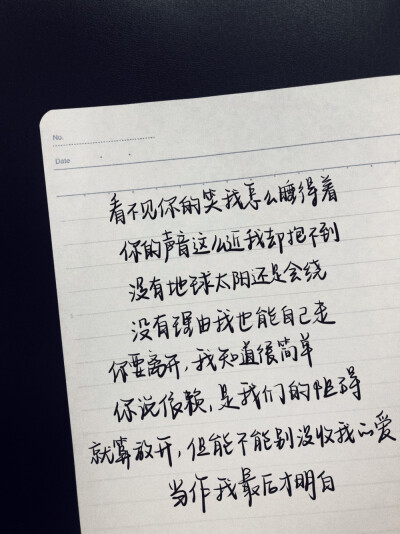 No.
Date
看不见你的笑我怎么睡得着
你的声音这么近我却抱不到
没有地球太阳还是会绕
没有理由我也能自己走
你要离开,我知道很简单
你说依赖,是我们的阻碍
就算放开,但能不能别没收我的爱
当作我最后才明白